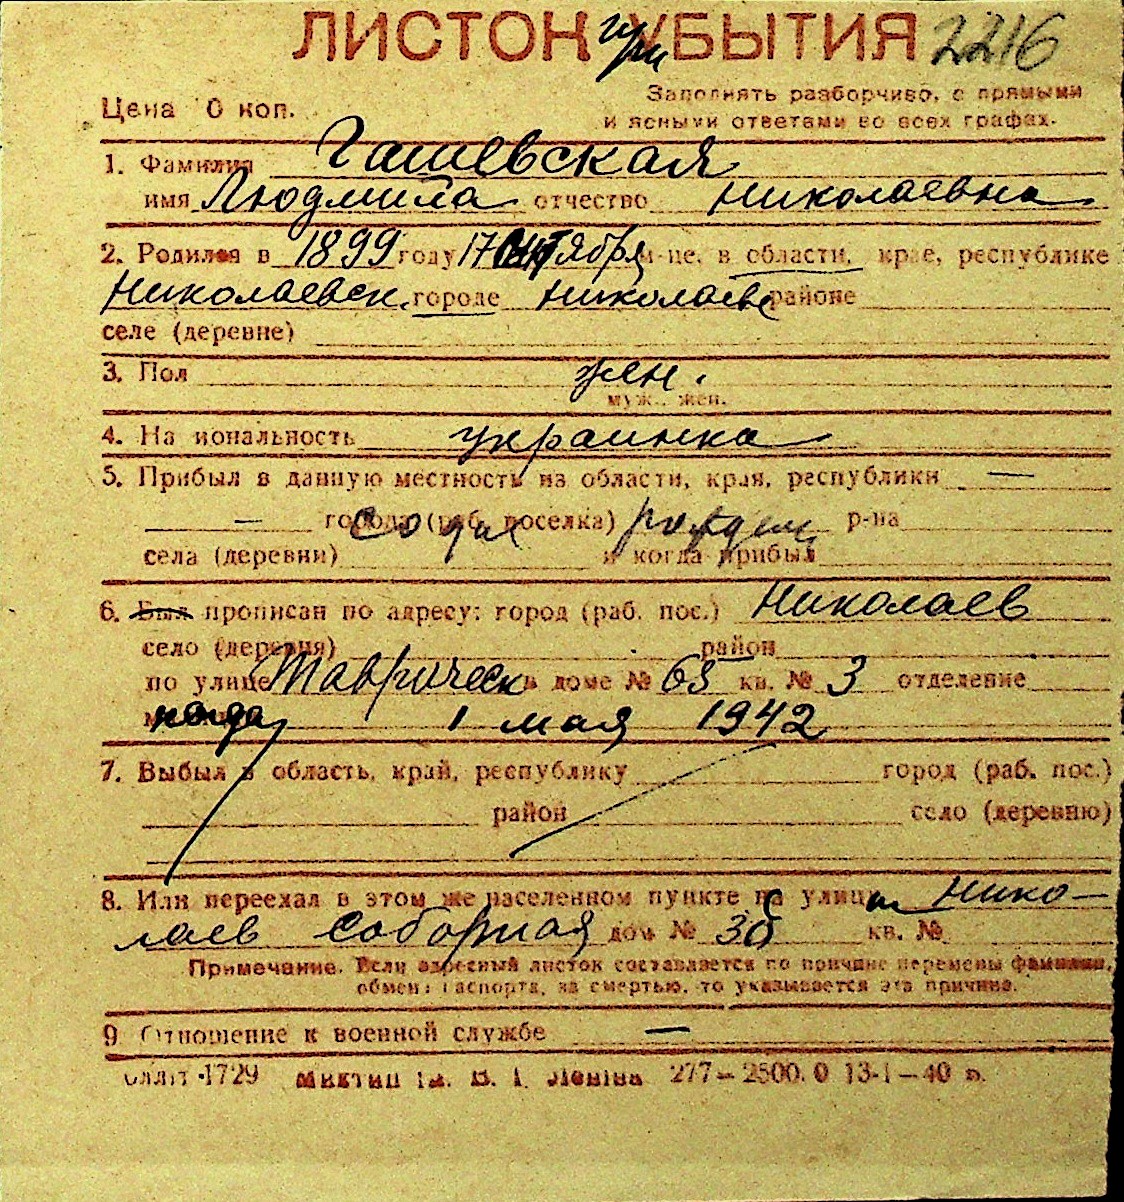 ЛИСТОК УБЫТИЯ 2216
при
Цена 0 коп. Заполнять разборчиво, с прямыми
и ясными ответами во всех графах.
1. Фамилия Гашевская
имя Людмила отчество Николаевна
2. Родился в 1899 году 17 октября м-це, в области, крае, республике
Николаевск. городе Николаеве районе
селе (деревне)
3. Пол жен.
муж., жен.
4. На иональность украинка
5. Прибыл в данную местность из области, края, республики —
— города (раб. поселка) р-на
со дня рожден
села (деревни) и когда прибыл
6. Был прописан по адресу: город (раб. пос.) Николаев
село (деревня) район
по улице Таврическ в доме № 65 кв. № 3 отделение
когда 1 мая 1942
7. Выбыл в область, край, республику город (раб. пос.)
район село (деревню)
8. Или переехал в этом же населенном пункте на улицу Нико-
лаев Соборная дом № 36 кв. №
Примечание. Если адресный листок составляется по причине перемены фамилии,
обмена паспорта, за смертью, то указывается эта причина.
9 Отношение к военной службе —
1729 В. І. Леніна 277—2500.0 13-I—40 р.